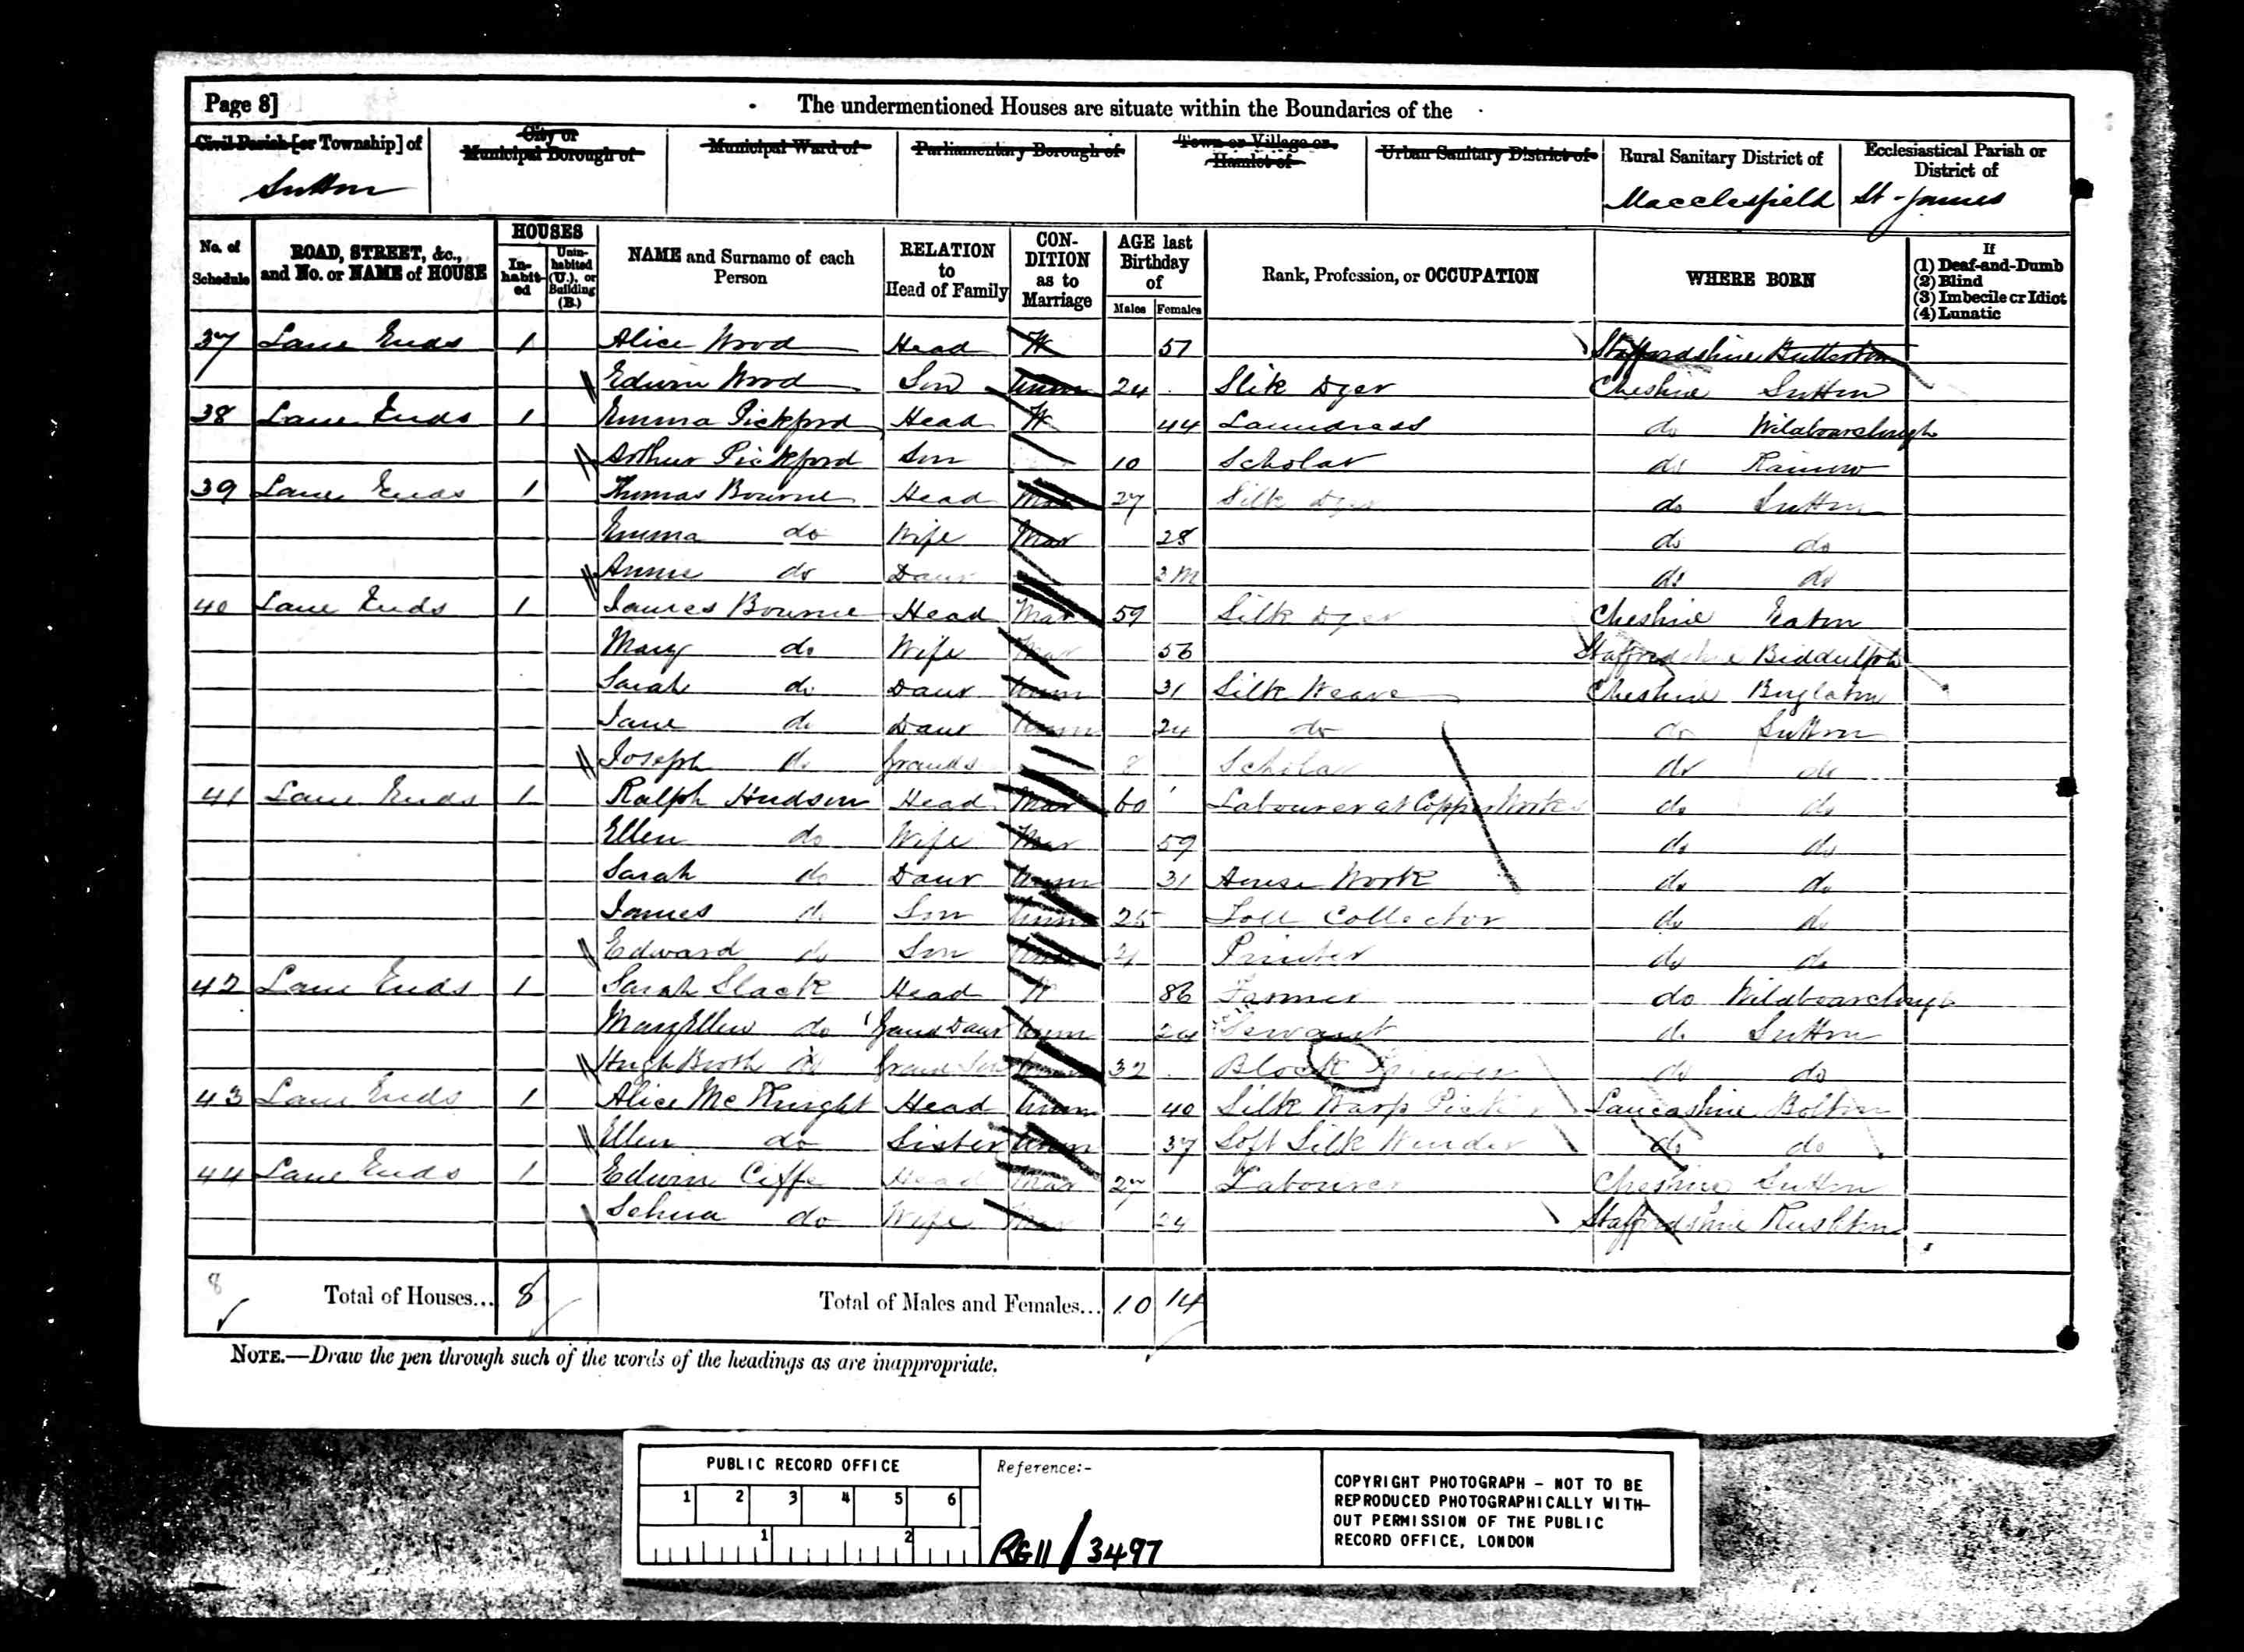 Page 8]
The undermentioned Houses are situate within the Boundaries of the
Civil Parish [or Township] of
City or Municipal Borough of
Municipal Ward of
Parliamentary Borough of
Town or Village or Hamlet of
Urban Sanitary District of
Rural Sanitary District of
Ecclesiastical Parish or District of
Sutton
Macclesfield
St. James
No. of Schedule
ROAD, STREET, &c., and No. or NAME of HOUSE
HOUSES
In-habit-ed
Unin-habited (U.), or Building (B.)
NAME and Surname of each Person
RELATION to Head of Family
CON-DITION as to Marriage
AGE last Birthday of
Males
Females
Rank, Profession, or OCCUPATION
WHERE BORN
If
(1) Deaf-and-Dumb
(2) Blind
(3) Imbecile or Idiot
(4) Lunatic
37 Lane Ends 1 Alice Wood Head W 57 Staffordshire Butterton
Edwin Wood Son Unm 24 Slik Dyer Cheshire Sutton
38 Lane Ends 1 Emma Pickford Head W 44 Laundress do Wildboarclough
Arthur Pickford Son 10 Scholar do Rainow
39 Lane Ends 1 Thomas Bourne Head Mar 27 Silk Dyer do Sutton
Emma do Wife Mar 28 do do
Annie do Daur 2 M do do
40 Lane Ends 1 James Bourne Head Mar 59 Silk Dyer Cheshire Eaton
Mary do Wife Mar 56 Staffordshire Biddulph
Sarah do Daur Unm 31 Silk Weave Cheshire Buglaton
Jane do Daur Unm 24 do do Sutton
Joseph do Grands 8 Scholar do do
41 Lane Ends 1 Ralph Hudson Head Mar 60 Labourer at Copper Works do do
Ellen do Wife Mar 59 do do
Sarah do Daur Unm 31 House Work do do
James do Son Unm 25 Toll Collector do do
Edward do Son Unm 21 Printer do do
42 Lane Ends 1 Sarah Slack Head W 86 Farmer do Wildboarclough
Mary Ellen do Grand Daur Unm 24 Servant do Sutton
Hugh Booth do Grand Son Unm 32 Block Printer do do
43 Lane Ends 1 Alice McKnight Head Unm 40 Silk Warp Picker Lancashire Bolton
Ellen do Sister Unm 37 Soft Silk Winder do do
44 Lane Ends 1 Edwin Head Mar 27 Labourer Cheshire Sutton
do Wife Mar 24 Staffordshire Rushton
8 Total of Houses... 8 Total of Males and Females... 10 14
NOTE.—Draw the pen through such of the words of the headings as are inappropriate.
PUBLIC RECORD OFFICE
1 2 3 4 5 6
1 2
Reference:-
RG11/3497
COPYRIGHT PHOTOGRAPH - NOT TO BE
REPRODUCED PHOTOGRAPHICALLY WITH-
OUT PERMISSION OF THE PUBLIC
RECORD OFFICE, LONDON